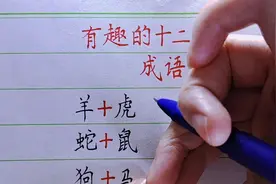 有趣的十二
成语
羊+虎
蛇+鼠
狗+马